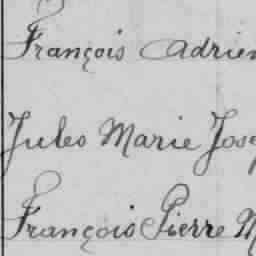 François Adrien
Jules Marie Jose
François Pierre M